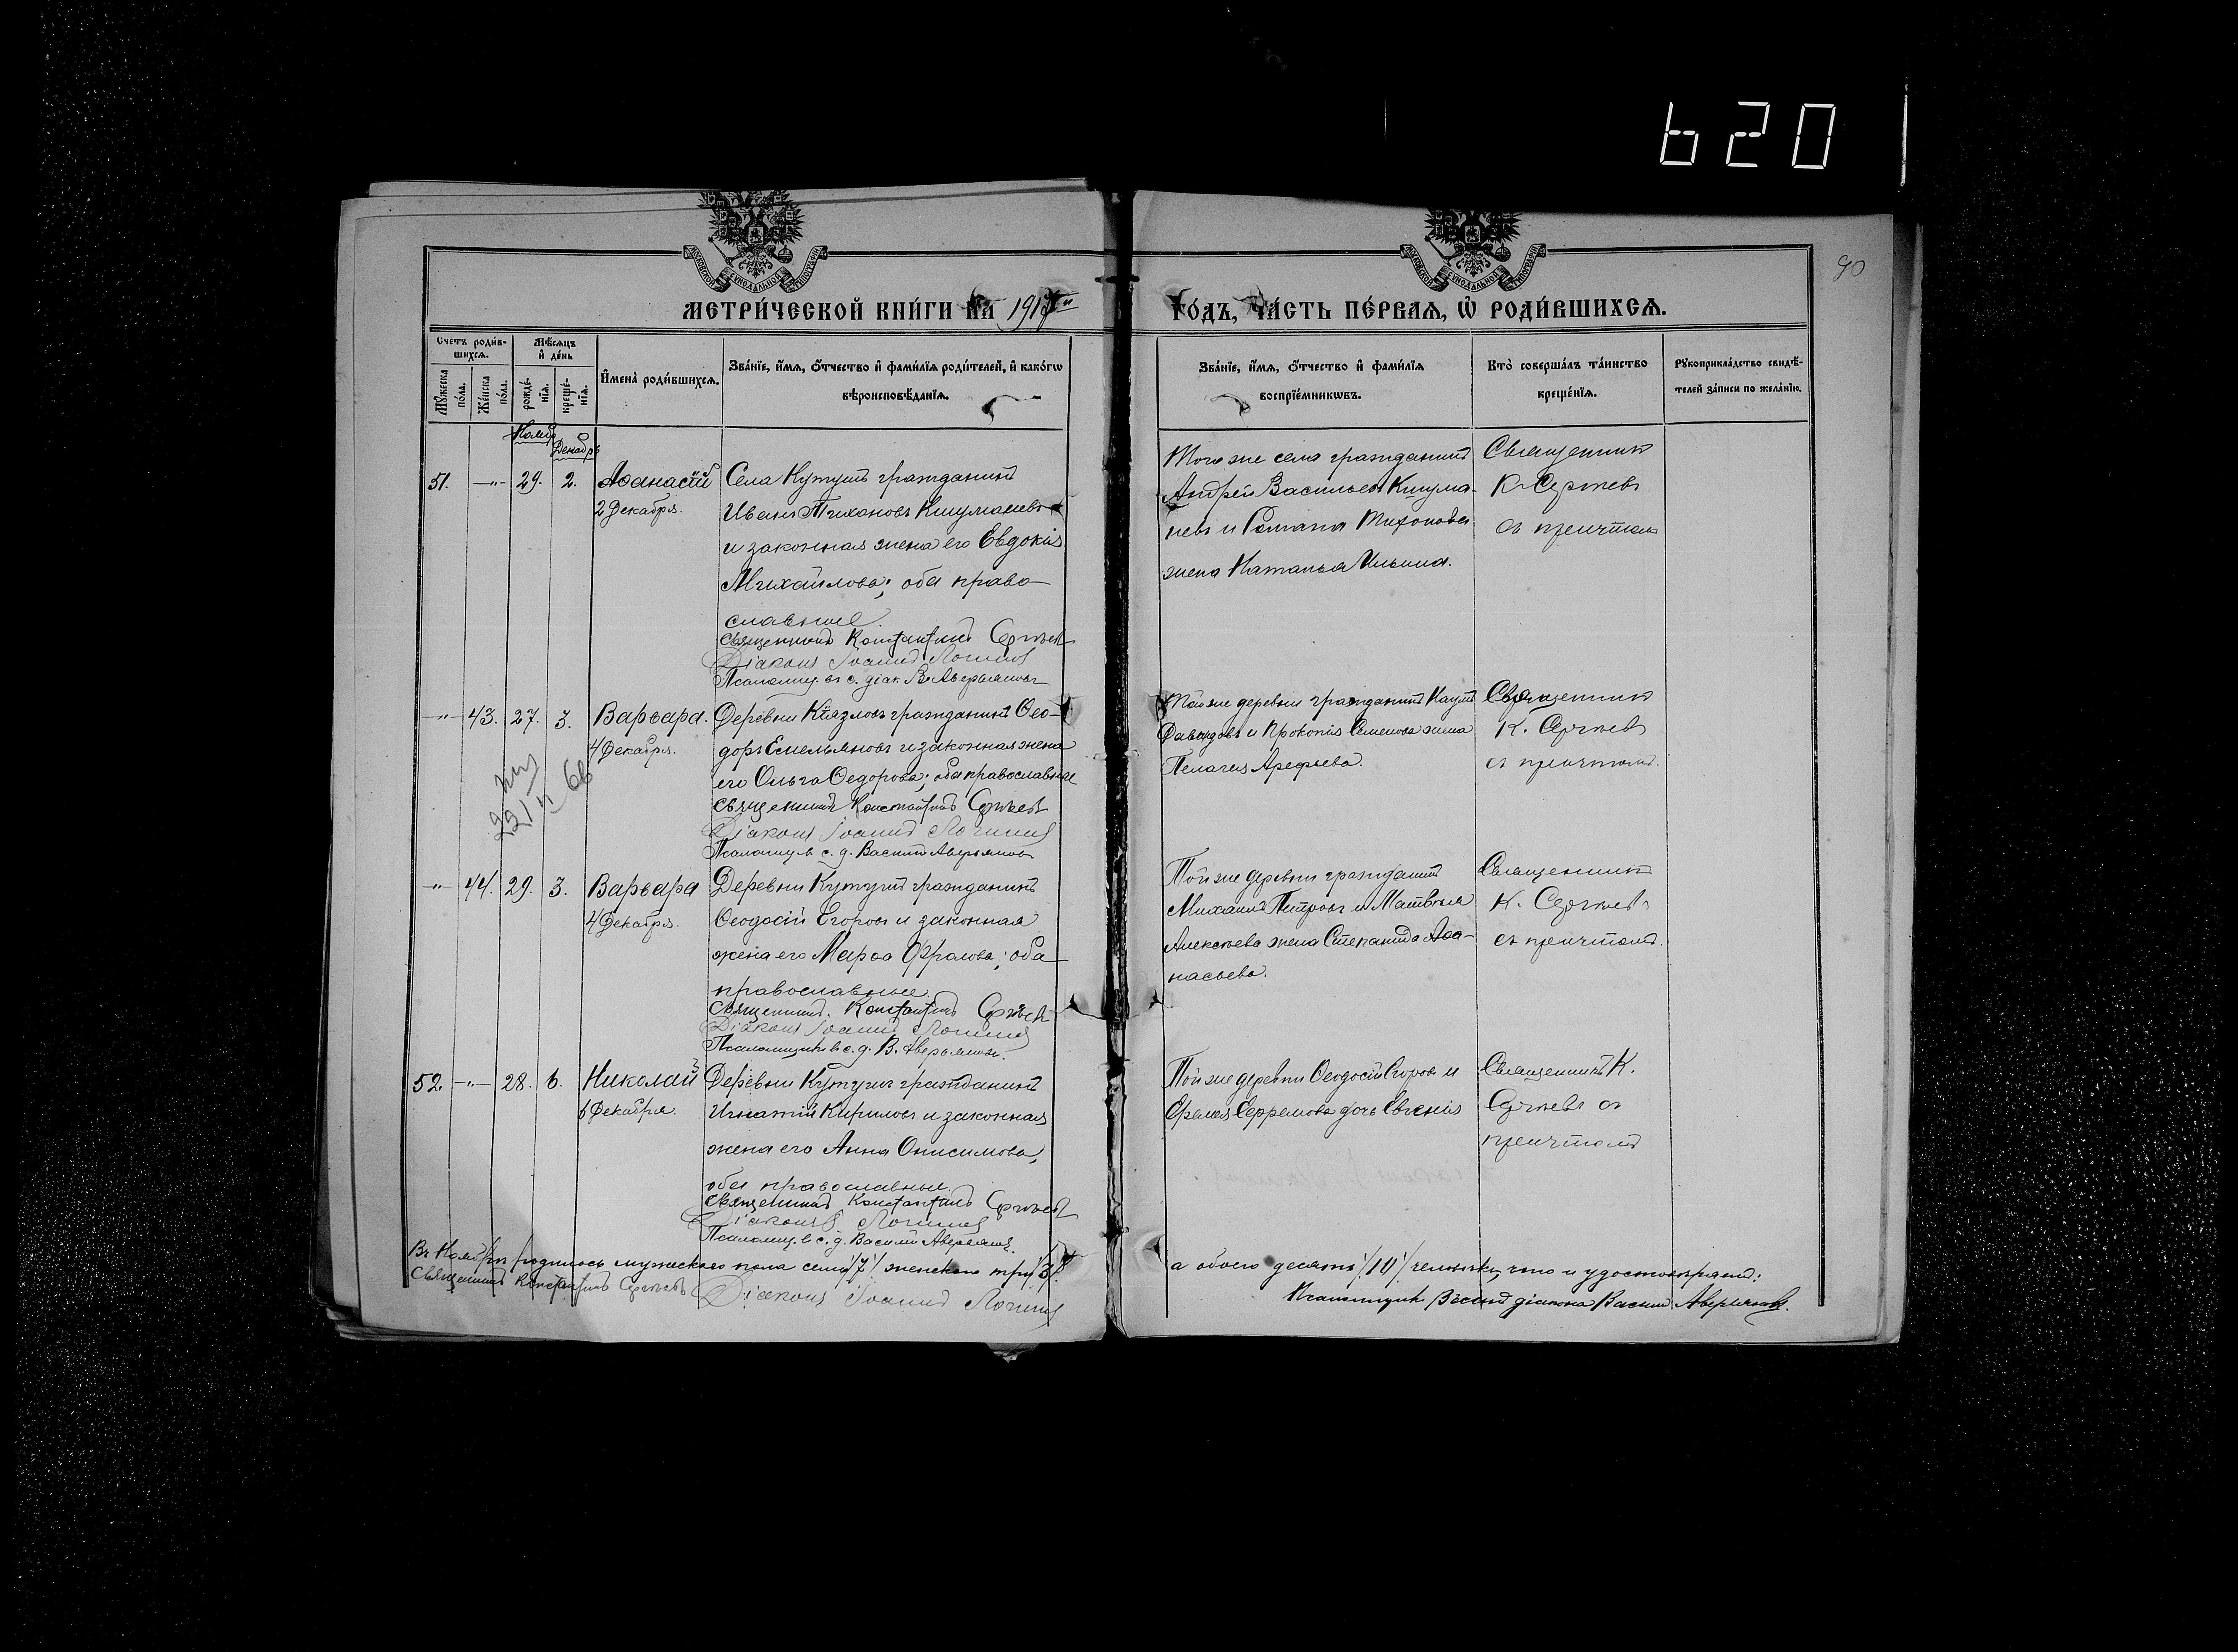 620
90
МОСКОВСКОЙ СѴНОДАЛЬНОЙ ТИПОГРАФІИ
МОСКОВСКОЙ СѴНОДАЛЬНОЙ ТИПОГРАФІИ
МЕТРИ́ЧЕСКОЙ КНИ́ГИ НА 191
ГО́ДЪ, ЧА́СТЬ ПЕ́РВАѦ, Ѡ РОДИ́ВШИХСѦ.
Счетъ роди́вшихсѧ.
Мѣ́сѧцъ и де́нь
Мꙋ́жеска по́ла.
Же́нска по́ла.
рожде́нїѧ.
креще́нїѧ.
Имена̀ роди́вшихсѧ.
Зва́нїе, и́мѧ, о́тчество и фами́лїѧ роди́телей, и како́гѡ
вѣроисповѣ́данїѧ.
Зва́нїе, и́мѧ, о́тчество и фами́лїѧ
воспрїе́мникѡвъ.
Кто̀ соверша́лъ та́инство
креще́нїѧ.
Рꙋкоприкла́дство свидѣ́-
телей за́писи по жела́нїю.
Ноябр
Декабрь
51. —"— 29. 2. Аѳанасій
2 Декабря.
Села Кутушъ гражданинъ
Иванъ Тихановъ Кшуманевъ
и законная жена его Евдокія
Михайлова; оба право-
славные.
Священникъ Константинъ Сергѣевъ
Діаконъ Іоаннъ Логиновъ
Псаломщ. въ с. діак. В. Аверьяновъ
Того же села гражданинъ
Андрей Васильевъ Кшума-
невъ и Романа Тихонова
жена Наталья Ильина.
Священникъ
К. Сергѣевъ
съ причтомъ
—"— 43. 27. 3. Варвара.
4 Декабря.
22/II 66
Деревни Князловъ гражданинъ Ѳео-
доръ Емельяновъ и законная жена
его Ольга Ѳедорова; оба православные
Священникъ Константинъ Сергѣевъ
Діаконъ Іоаннъ Логиновъ
Псаломщ. въ с. д. Василій Аверьяновъ
Той же деревни гражданинъ Наумъ
Давыдовъ и Прокопія Семенова жена
Пелагея Арефьева.
Священникъ
К. Сергѣевъ
съ причтомъ.
—"— 44. 29. 3. Варвара
4 Декабря.
Деревни Кутушъ гражданинъ
Ѳеодосій Егоровъ и законная
жена его Марѳа Фролова; оба
православные
Священникъ Константинъ Сергѣевъ
Діаконъ Іоаннъ Логиновъ
Псаломщикъ въ с. д. В. Аверьяновъ.
Той же деревни гражданинъ
Михаилъ Петровъ и Матвѣя
Алексѣева жена Степанида Аѳа-
насьева.
Священникъ
К. Сергѣевъ
съ причтомъ.
52. —"— 28. 6. Николай
6 Декабря.
Деревни Кутушъ гражданинъ
Игнатій Кириловъ и законная
жена его Анна Онисимова,
оба православные.
Священникъ Константинъ Сергѣевъ
Діаконъ І. Логиновъ
Псаломщ. въ с. д. Василій Аверьяновъ.
Той же деревни Ѳеодосій Егоровъ и
Ефремова дочь Евгенія
Священникъ К.
Сергѣевъ съ
причтомъ
Въ Ноябрѣ родилось мужескаго пола семь /7/ женскаго три /3/
а обоего десять /10/ человѣкъ, что и удостовѣряемъ:
Священникъ Константинъ Сергѣевъ Діаконъ Іоаннъ Логиновъ
Псаломщикъ въ санѣ діакона Василій Аверьяновъ.